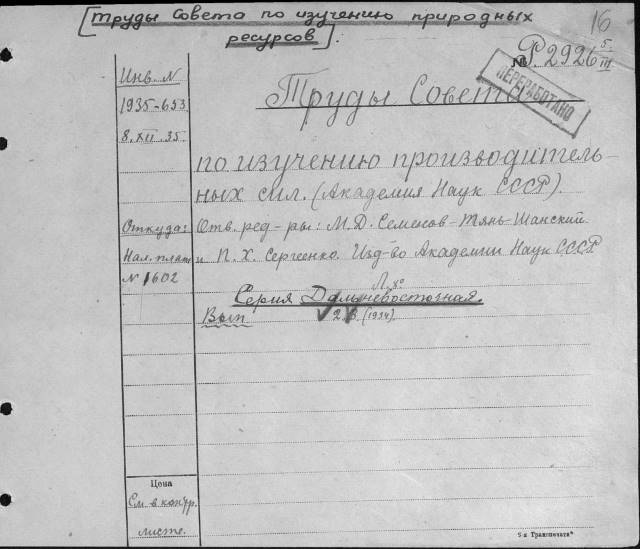 [Труды Совета по изучению природных
ресурсов].
16
№ Р. 2926 5/III
ПЕРЕРАБОТАНО
Инв. N
1935-653
8.XII.35
Труды Совета
по изучению производитель-
ных сил. (Академия Наук СССР).
Откуда:
Отв. ред-ры: М.Д. Семенов-Тянь-Шанский
Нал. плат
N 1602
и П. Х. Сергеенко. Изд-во Академии Наук СССР
Л. 8°
Серия Дальневосточная.
Вып 2. (1934)
Цена
См. в контр.
листе.
5-я Транспечать